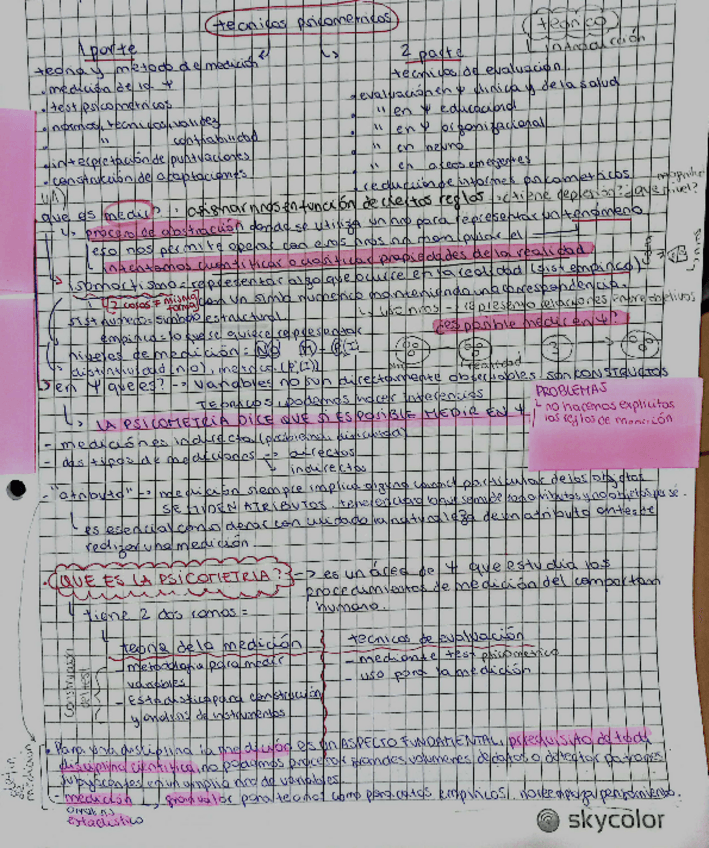 tecnicas psicometricas
teorico
introducción
1 parte
teoria y metodo de medición
• medición de la ψ
• test psicometricos
• normas, tecnicas, validez
" confiabilidad
• interpretación de puntuaciones
• construcción de adaptaciones
2 parte
tecnicas de evaluación
• evaluación en ψ clinica y de la salud
• " en ψ educacional
• " en ψ organizacional
• " en neuro
• " en areas emergentes
• redacción de informes psicometricos
que es medir? : asignar nros en función de ciertas reglas
¿tiene depresión? ¿que nivel?
proceso de abstracción donde se utiliza un nro para representar un fenómeno
eso nos permite operar con esos nros no manipular el
intentamos cuantificar o clasificar propiedades de la realidad
isomorfismo: representar algo que ocurre en la realidad (sist empirico)
2 cosas ≠ misma forma
con un sist numerico manteniendo una correspondencia.
sist numerico = simbolo estructural
empirico = lo que se quiere representar
¿es posible medir en ψ?
niveles de medición =
en ψ que es? -> variables no son directamente observables, son CONSTRUCTOS
TEORICOS, podemos hacer inferencias
LA PSICOMETRIA DICE QUE SI ES POSIBLE MEDIR EN ψ
PROBLEMAS
no hacemos explicitas
las reglas de medición
- medición es indirecta
- dos tipos de mediciones -> directas
indirectas
- "atributo" -> medición siempre implica alguna caract particular de los objetos
SE MIDEN ATRIBUTOS
es esencial considerar con cuidado la naturaleza de un atributo antes de
realizar una medición
¿QUE ES LA PSICOMETRIA? -> es un área de ψ que estudia los
procedimientos de medición del comportam
humano.
tiene 2 dos ramas =
teoria de la medición
- metodologia para medir
variables
- Estadistica para construcción
y analisis de instrumentos
construcción
del test
tecnicas de evaluación
- mediante test psicometrico
- uso para la medición
• Para una disciplina la medición es un ASPECTO FUNDAMENTAL, prerequisito de toda
disciplina cientifica, no podiamos procesar grandes volumenes de datos o detectar patrones
subyacentes en un amplio nro de variables
- medición, gran valor para teorias como para datos empiricos, no reemplaza pensamiento.
estadistico
skycolor